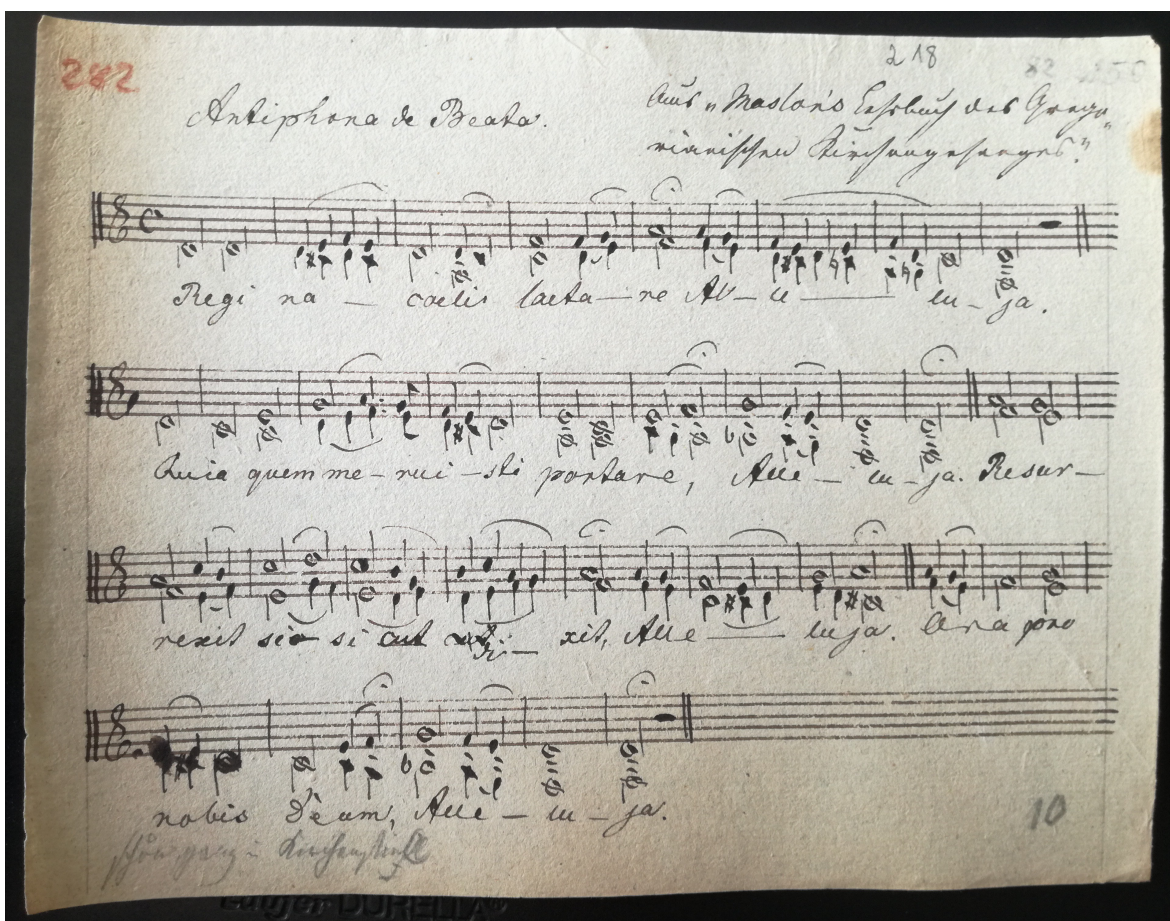 282
218
82
Antiphona de Beata.
Aus "Maslon's Lehrbuch des Grego-
rianischen Kirchengesanges."
Regi na — coelis laeta — re Al — le — lu — ja.
Quia quem me — rui — sti portare, Alle — lu — ja. Resur —
rexit sic si cut xit, Alle — luja. Ora pro
nobis Deum, Alle — lu — ja.
10